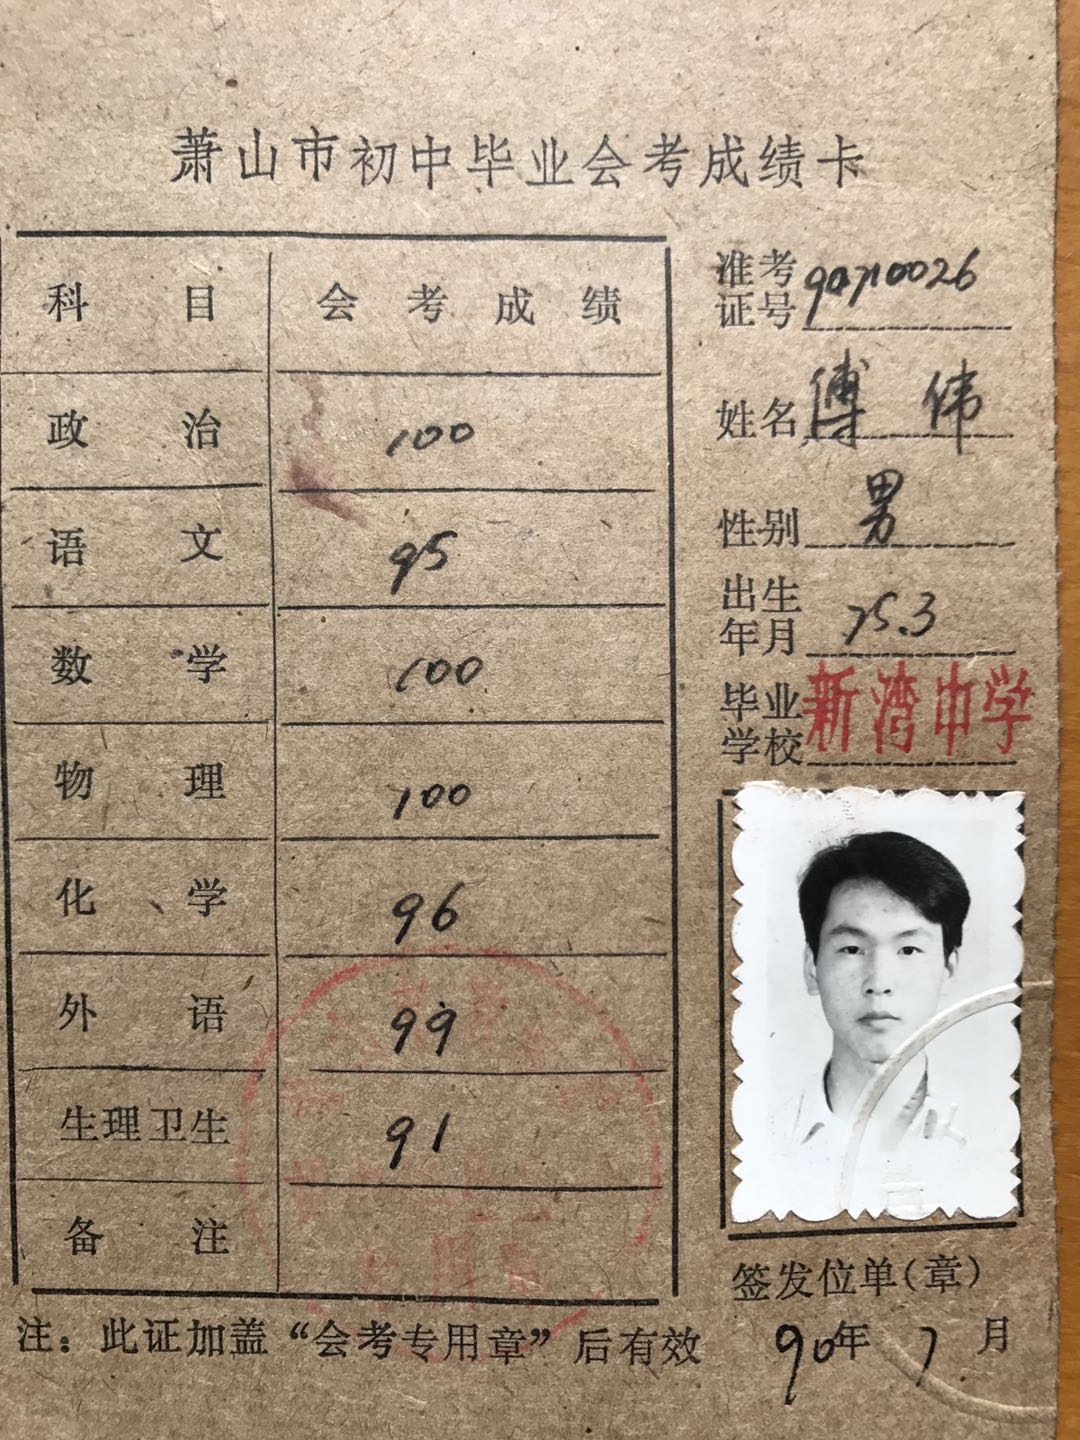 萧山市初中毕业会考成绩卡
科目 会考成绩
政治 100
语文 95
数学 100
物理 100
化学 96
外语 99
生理卫生 91
备注
注：此证加盖“会考专用章”后有效
准考证号 90710026
姓名 傅伟
性别 男
出生年月 75.3
毕业学校 新湾中学
签发位单(章)
90年7月